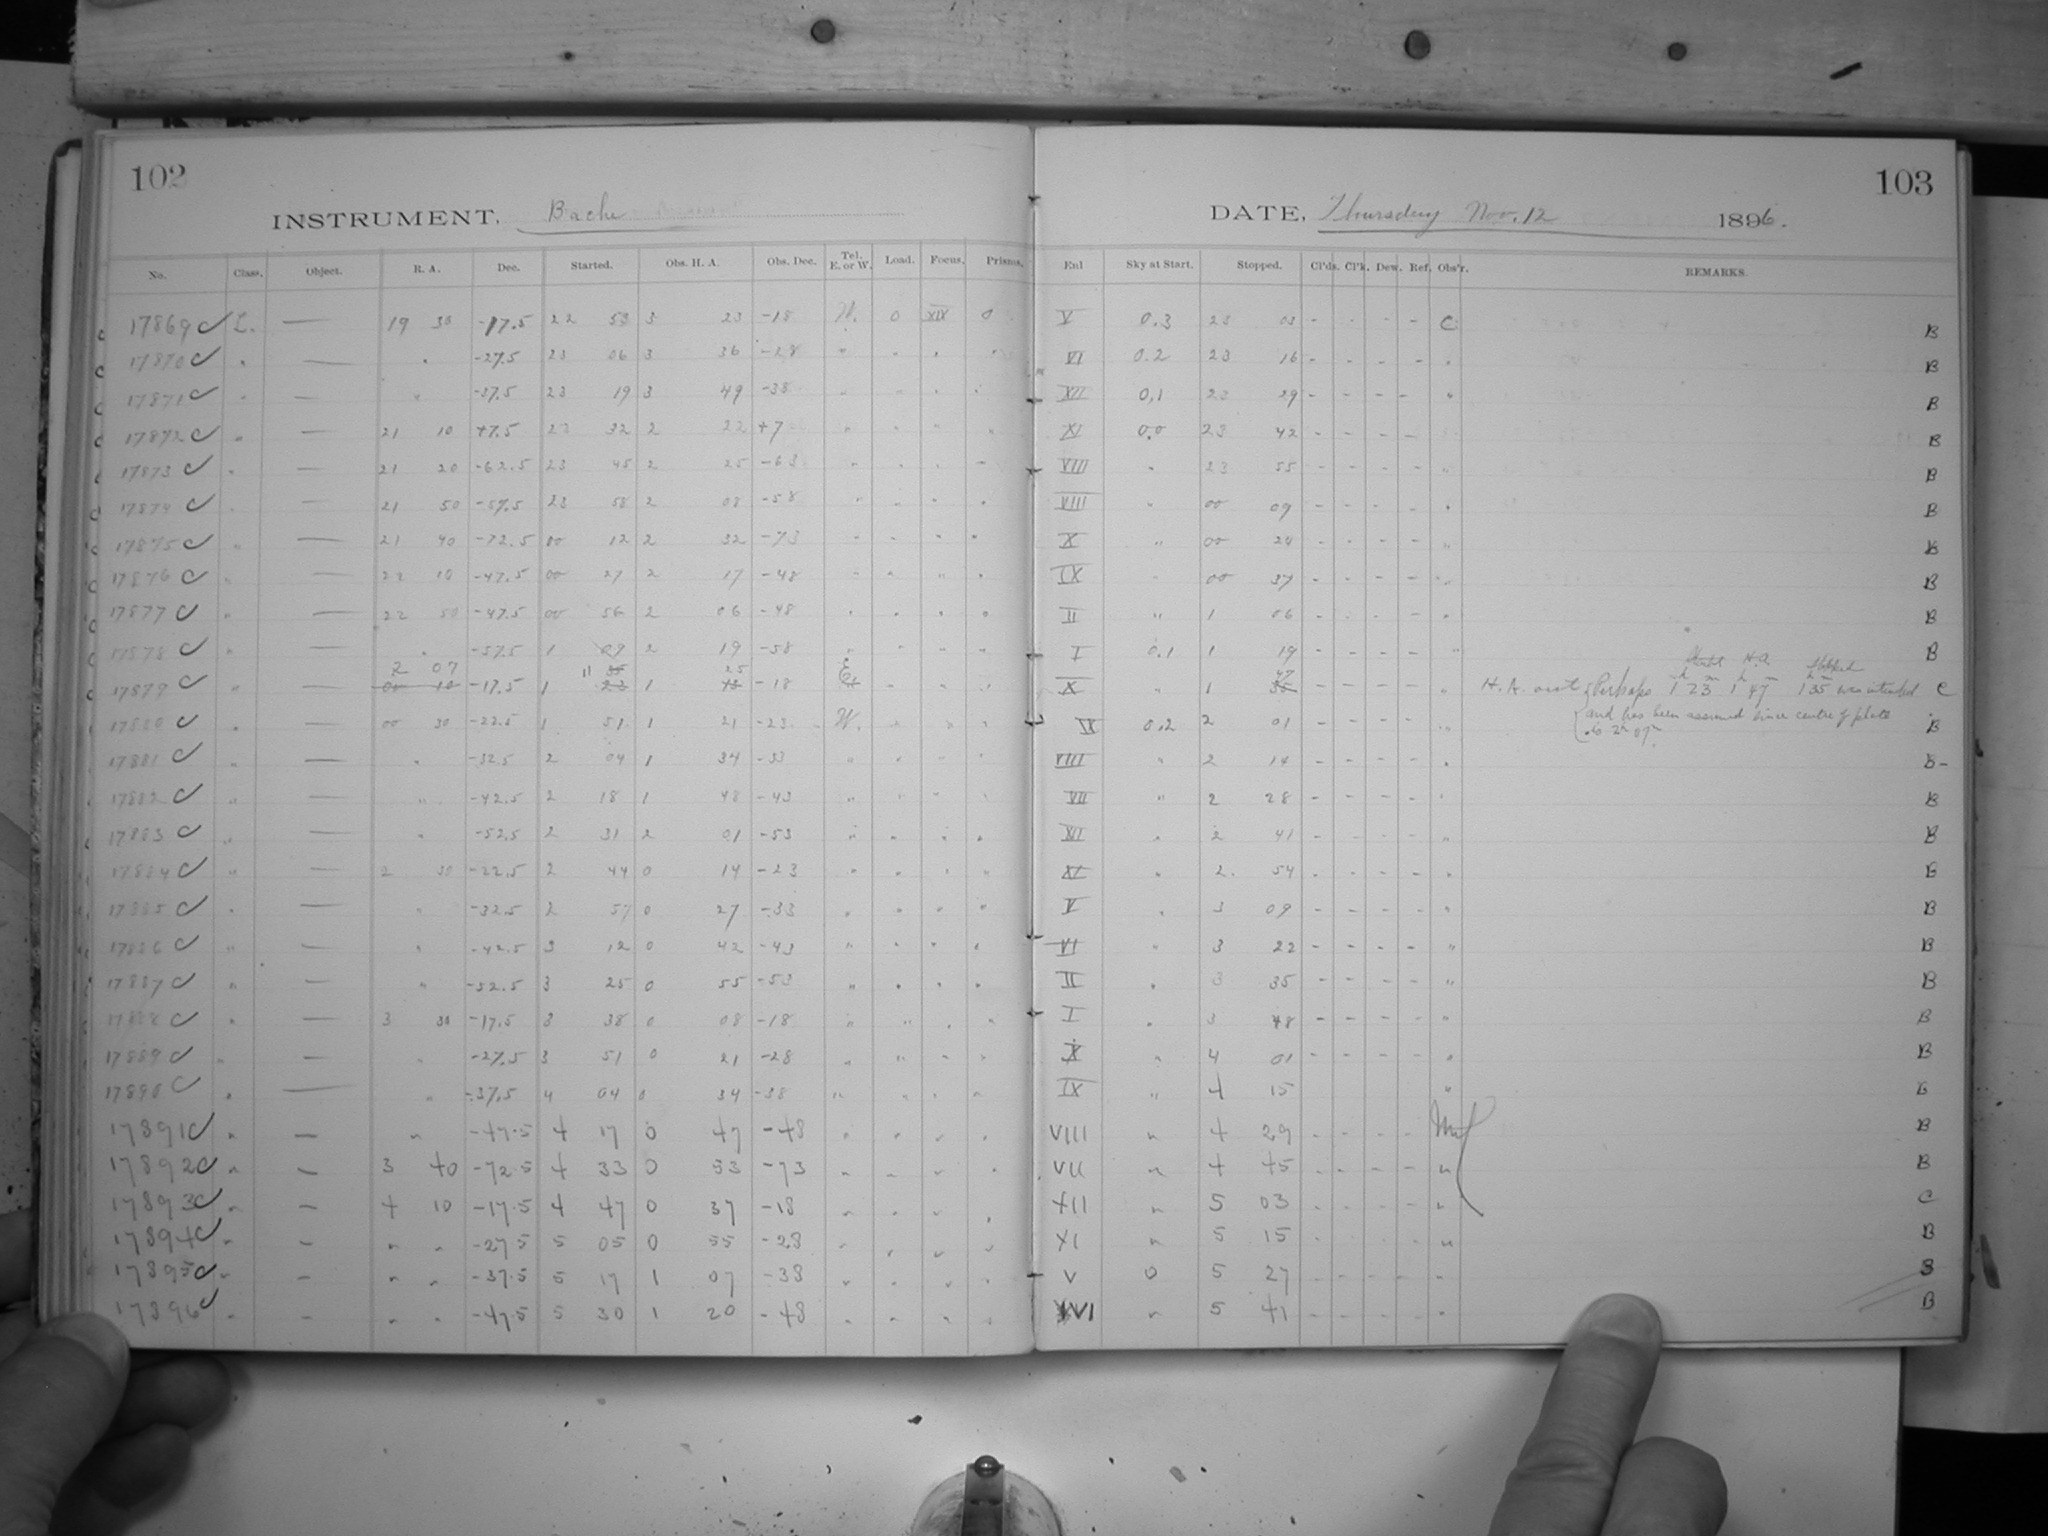 102
103
INSTRUMENT, Bache
DATE, Thursday Nov. 12 1896.
No. Class. Object. R. A. Dec. Started. Obs. H. A. Obs. Dec. Tel. E. or W. Load. Focus. Prisms. Enl Sky at Start. Stopped. Cl'ds. Cl'k. Dew. Ref. Obs'r. REMARKS.
17869 C L. — 19 30 -17.5 22 53 3 23 -18 W. 0 XIX 0 V 0.3 23 03 - - - - C B
17870 C " — " -27.5 23 06 3 36 -28 " " " " VI 0.2 23 16 - - - - " B
17871 C " — " -37.5 23 19 3 49 -38 " " " " XII 0,1 23 29 - - - - " B
17872 C " — 21 10 +7.5 23 32 2 22 +7 " " " " XI 0.0 23 42 - - - - B
17873 C " — 21 20 -62.5 23 45 2 25 -63 " " " " VIII " 23 55 - - - - " B
17874 C — 21 50 -57.5 23 58 2 08 -58 " " " " VIII " 00 09 - - - - " B
17875 C " — 21 40 -72.5 00 12 2 32 -73 " " " " X " 00 24 - - - - " B
17876 C " — 22 10 -47.5 00 27 2 17 -48 " " " " IX " 00 37 - - - - " B
17877 C " — 22 50 -47.5 00 56 2 06 -48 " " " " II " 1 06 - - - - " B
17878 C " — " -57.5 1 09 2 19 -58 " " " " I 0.1 1 19 - - - - " B
2 07 " 35 25 E. 47
17879 C " — 00 10 -17.5 1 23 1 13 -18 " " " X " 1 35 - - - - " H. A. Perhaps 1 23 1 47 1 35 was intended C
and has been assumed since centre of plate
is 2h 07m.
17880 C " — 00 30 -22.5 1 51 1 21 -23 W. " " " IX 0.2 2 01 - - - - " B
17881 C " — " -32.5 2 04 1 34 -33 " " " " VIII " 2 14 - - - - " B-
17882 C " — " -42.5 2 18 1 48 -43 " " " " VII " 2 28 - - - - " B
17883 C " — " -52.5 2 31 2 01 -53 " " " " XII " 2 41 - - - - " B
17884 C " — 2 30 -22.5 2 44 0 14 -23 " " " " XI " 2. 54 - - - - " B
17885 C " — " -32.5 2 57 0 27 -33 " " " " V " 3 09 - - - - " B
17886 C " — " -42.5 3 12 0 42 -43 " " " " VI " 3 22 - - - - " B
17887 C " — " -52.5 3 25 0 55 -53 " " " " II " 3 35 - - - - " B
17888 C " — 3 30 -17.5 3 38 0 08 -18 " " " " I " 3 48 - - - - " B
17889 C " — " -27.5 3 51 0 21 -28 " " " " X " 4 01 - - - - " B
17890 C " — " -37.5 4 04 0 34 -38 " " " " IX " 4 15 " B
17891 C " — " -47.5 4 17 0 47 -48 " " " " VIII " 4 29 - - - - B
17892 C " — 3 40 -72.5 4 33 0 53 -73 " " " " VII " 4 45 - - - - " B
17893 C " — 4 10 -17.5 4 47 0 37 -18 " " " " XII " 5 03 - - - - " C
17894 C " — " " -27.5 5 05 0 55 -28 " " " " XI " 5 15 - - - - " B
17895 C " — " " -37.5 5 17 1 07 -38 " " " " V 0 5 27 - - - - " B
17896 C " — " " -47.5 5 30 1 20 -48 " " " " VI " 5 41 - - - - " B